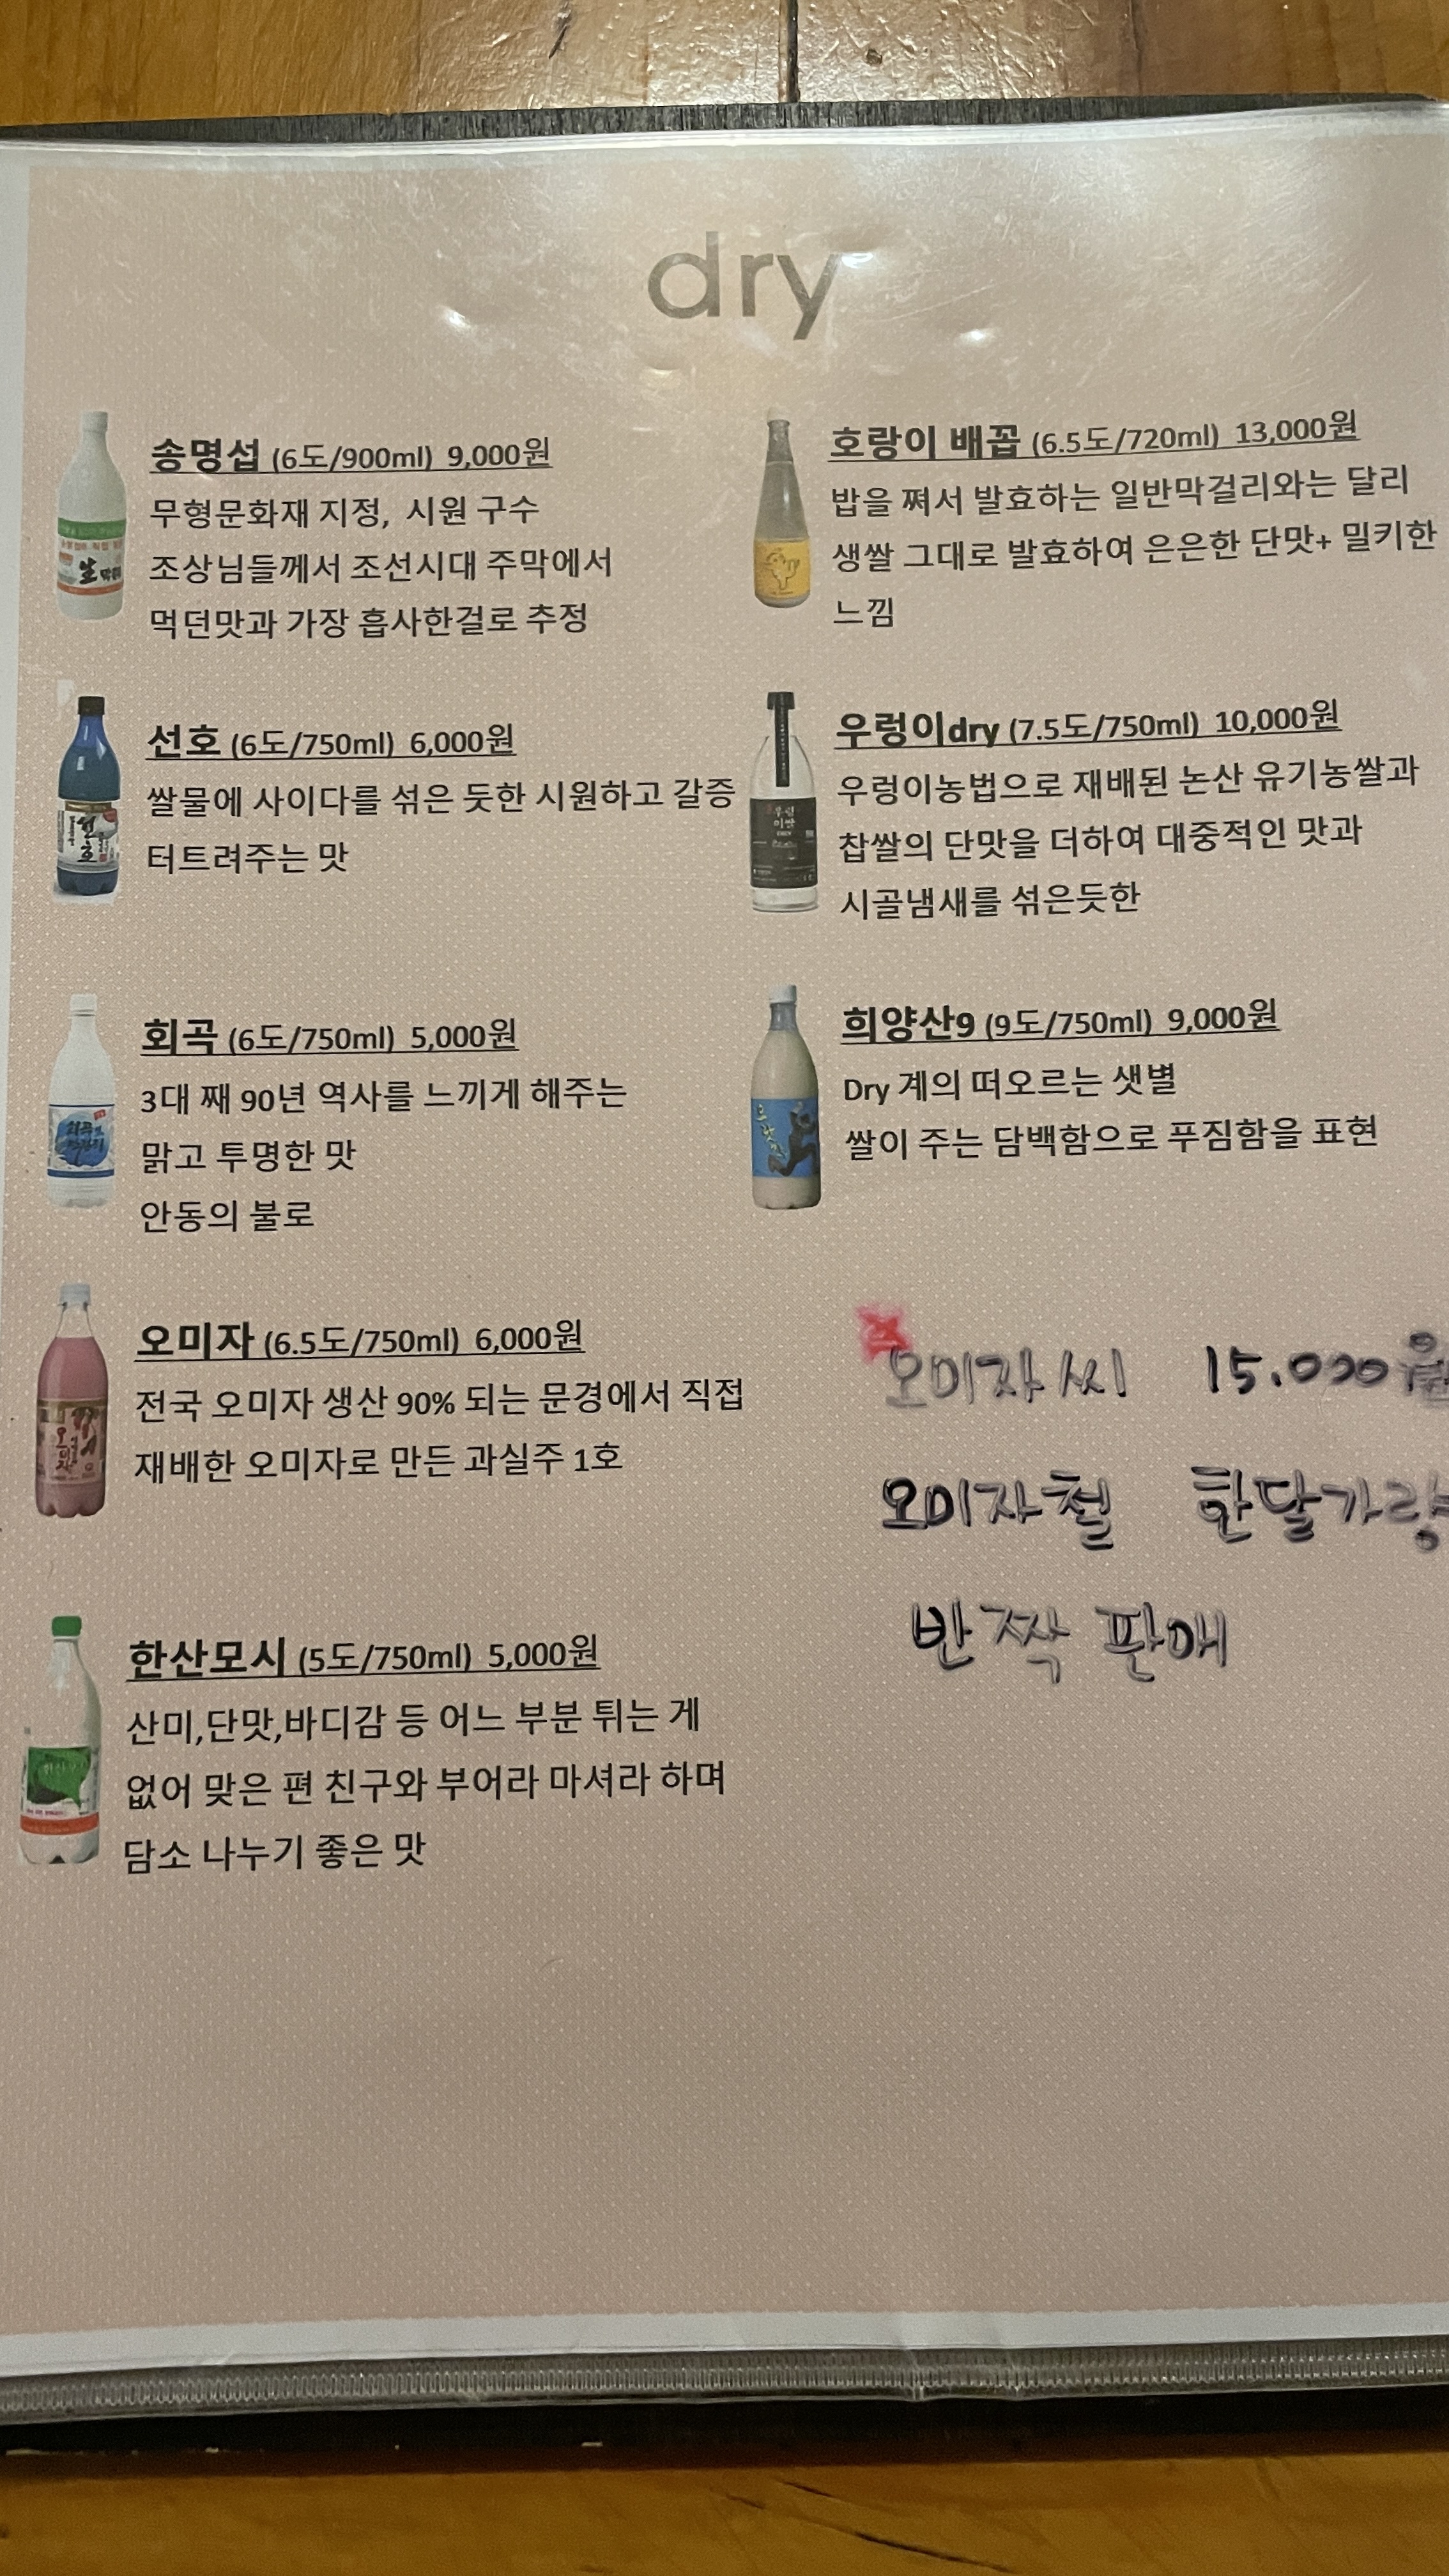 dry
송명섭 (6도/900ml) 9,000원
무형문화재 지정, 시원 구수
조상님들께서 조선시대 주막에서
먹던맛과 가장 흡사한걸로 추정
선호 (6도/750ml) 6,000원
쌀물에 사이다를 섞은 듯한 시원하고 갈증
터트려주는 맛
회곡 (6도/750ml) 5,000원
3대 째 90년 역사를 느끼게 해주는
맑고 투명한 맛
안동의 불로
오미자 (6.5도/750ml) 6,000원
전국 오미자 생산 90% 되는 문경에서 직접
재배한 오미자로 만든 과실주 1호
한산모시 (5도/750ml) 5,000원
산미,단맛,바디감 등 어느 부분 튀는 게
없어 맞은 편 친구와 부어라 마셔라 하며
담소 나누기 좋은 맛
호랑이 배꼽 (6.5도/720ml) 13,000원
밥을 쪄서 발효하는 일반막걸리와는 달리
생쌀 그대로 발효하여 은은한 단맛+ 밀키한
느낌
우렁이dry (7.5도/750ml) 10,000원
우렁이농법으로 재배된 논산 유기농쌀과
찹쌀의 단맛을 더하여 대중적인 맛과
시골냄새를 섞은듯한
희양산9 (9도/750ml) 9,000원
Dry 계의 떠오르는 샛별
쌀이 주는 담백함으로 푸짐함을 표현
오미자씨 15.000원
오미자철 한달가량
반짝 판매